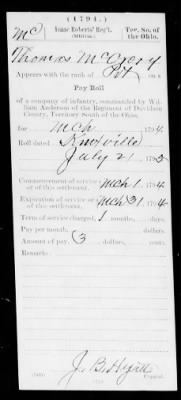 (1794.)
Mc Isaac Roberts' Reg't. Ter. So. of the Ohio.
(Militia.)
Thomas McCrory
Appears with the rank of Pvt on a
Pay Roll
of a company of infantry, commanded by Wil-
liam Anderson of the Regiment of Davidson
County, Territory South of the Ohio,
for Mch , 1794.
Roll dated Knoxville
July 21 , 1795
Commencement of service or of this settlement, Mch 1 , 1794.
Expiration of service or of this settlement, Mch 31 , 1794
Term of service charged, 1 months, days.
Pay per month, dollars.
Amount of pay, (3 dollars, cents.
Remarks:
J. B.
Copyist.